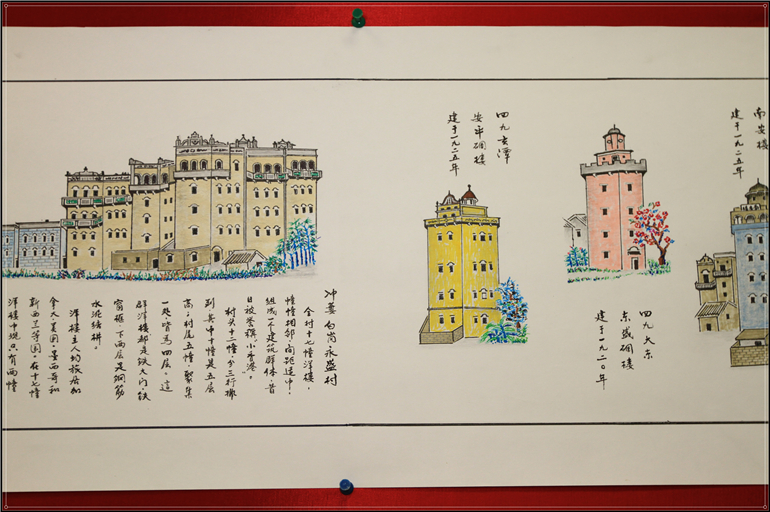 南安楼
建于一九二五年
四九玄潭
安平碉楼
建于一九二五年
四九大东
东盛碉楼
建于一九二〇年
冲蒌 永盛村
全村十七幢洋楼，
幢幢相邻，间距适中，
组成一个建筑群体，昔
日被誉称"小香港"。
村头十二幢，分三行排
列，其中十幢是五层
高，村尾五幢，聚集
一处，皆为四层。这
群洋楼都是铁大门，铁
窗框，下两层是钢筋
水泥结构。
洋楼主人均旅居加
拿大、美国、墨西哥和
新西兰等国。在十七幢
洋楼中现只有两幢